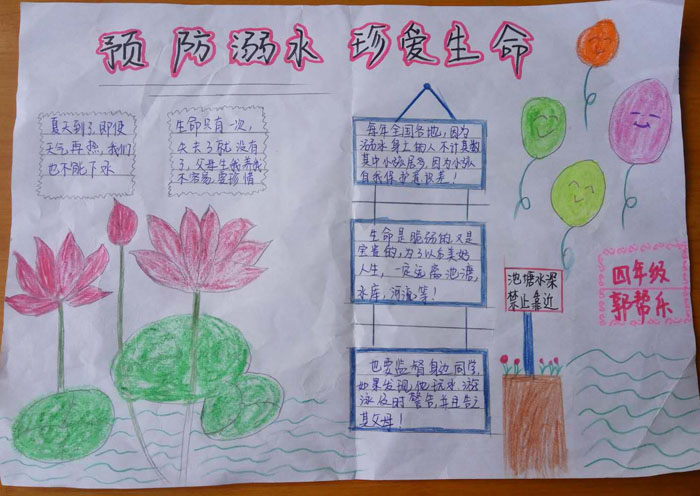 预防溺水 珍爱生命
夏天到了,即使
天气再热,我们
也不能下水
生命只有一次,
失去了就没有
了,父母生我养我
不容易,要珍惜
每年全国各地,因为
溺水身上的人不计其数
其中小孩居多,因为小孩
自我保护意识差!
生命是脆弱的,又是
宝贵的,为了以后美好
人生,一定远离池溏,
水库,河流等!
也要监督身边同学,
如果发现他玩水、游
泳及时警告,并且告之
其父母!
池塘水深
禁止靠近
四年级
郭帮乐